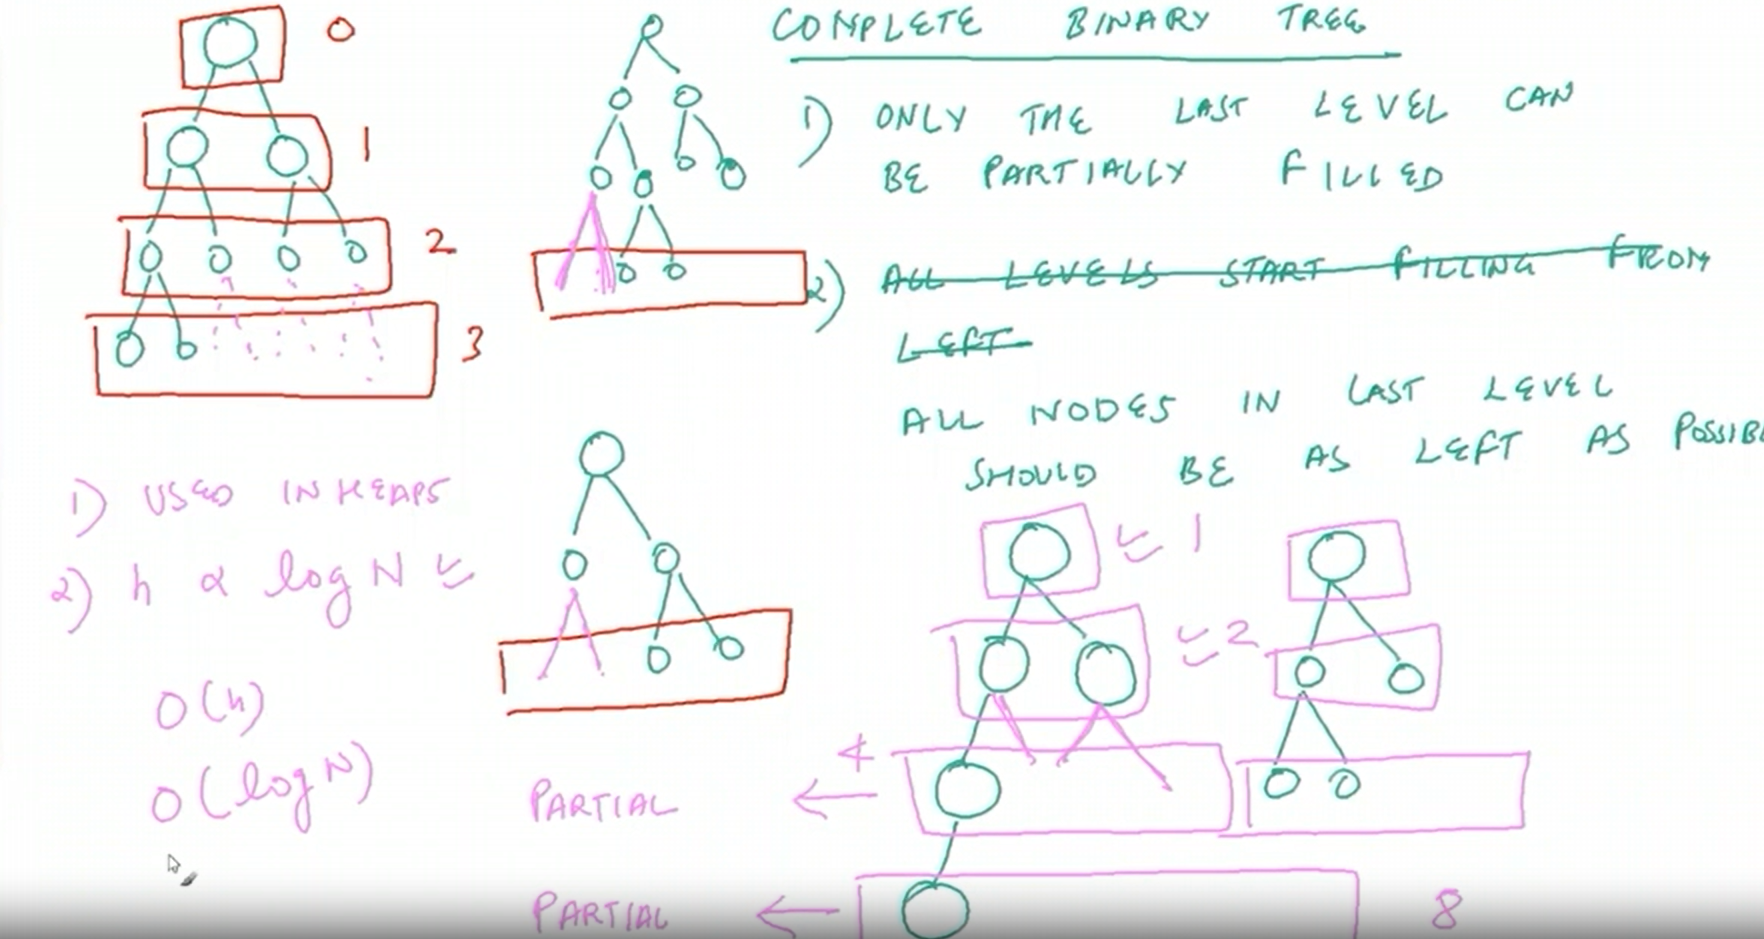 COMPLETE BINARY TREE
1) ONLY THE LAST LEVEL CAN
BE PARTIALLY FILLED
2) ALL LEVELS START FILLING FROM
LEFT
ALL NODES IN LAST LEVEL
SHOULD BE AS LEFT AS POSSIB
0
1
2
3
1) USED IN HEAPS
2) h α log N
O(h)
O(log N)
1
2
4
PARTIAL
PARTIAL
8